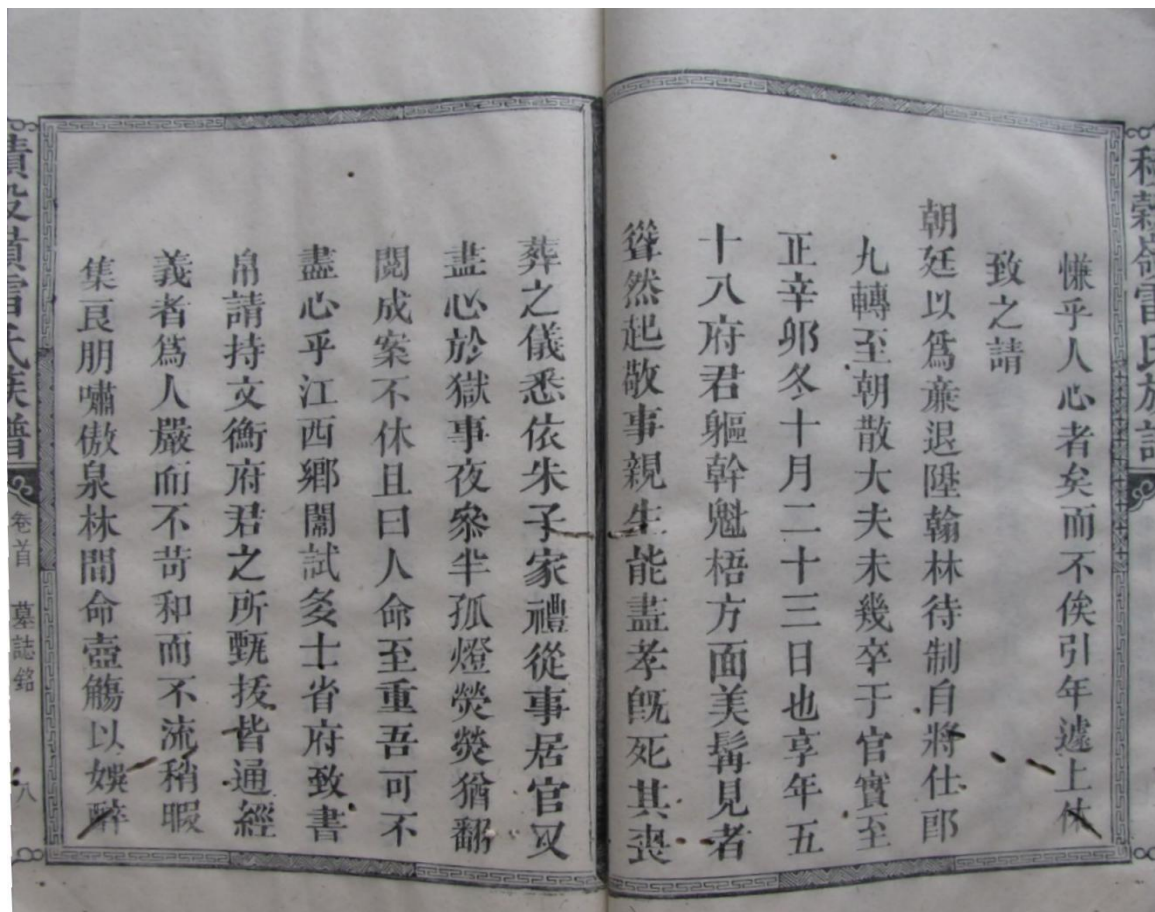 慊乎人心者矣而不俟引年遽上休
致之請
朝廷以爲亷退陞翰林待制自將仕郎
九轉至朝散大夫未幾卒于官實至
正辛夘冬十月二十三日也享年五
十八府君軀幹魁梧方面美髯見者
聳然起敬事親生能盡孝旣死其喪
葬之儀悉依朱子家禮從事居官又
盡心於獄事夜叅半孤燈熒熒猶翻
閱成案不休且曰人命至重吾可不
盡心乎江西鄉闈試多士省府致書
帛請持文衡府君之所甄拔皆通經
義者爲人嚴而不苛和而不流稍暇
集良朋嘯傲泉林間命壺觴以娛醉
積穀嶺雷氏族譜
卷首
墓誌銘
八